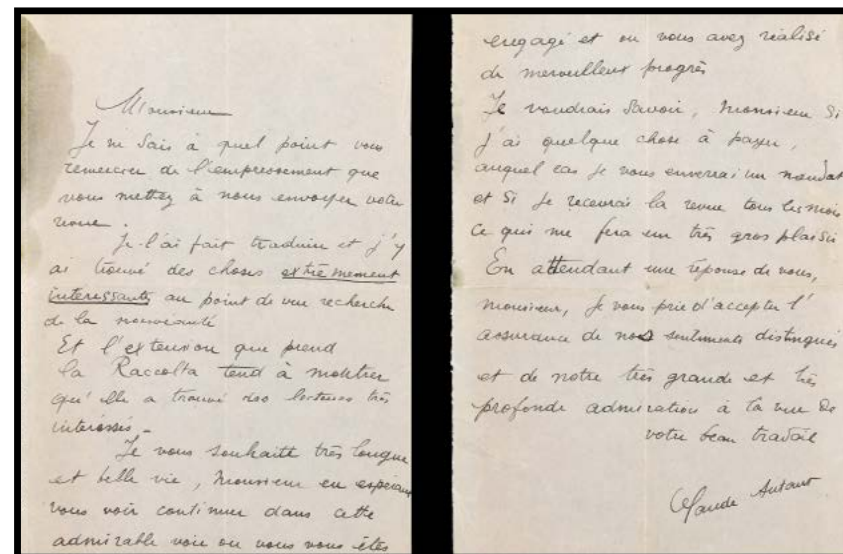 Monsieur
Je ne sais à quel point vous
remercier de l'empressement que
vous mettez à nous envoyer votre
revue.
Je l'ai fait traduire et j'y
ai trouvé des choses extrêmement
intéressantes au point de vue recherche
de la nouveauté
Et l'extension que prend
la Raccolta tend à montrer
qu'elle a trouvé des lecteurs très
intéressés -
Je vous souhaite très longue
et belle vie, Monsieur en espérant
vous voir continuer dans cette
admirable voie ou vous vous êtes
engagé et ou vous avez réalisé
de merveilleux progrès
Je voudrais savoir, Monsieur Si
j'ai quelque chose à payer,
auquel cas je vous enverrai un mandat
et Si je recevrai la revue tous les mois
ce qui me fera un très gros plaisir
En attendant une réponse de vous,
monsieur, je vous prie d'accepter l'
assurance de nos sentiments distingués
et de notre très grande et très
profonde admiration à la vue de
votre beau travail
Claude Autant